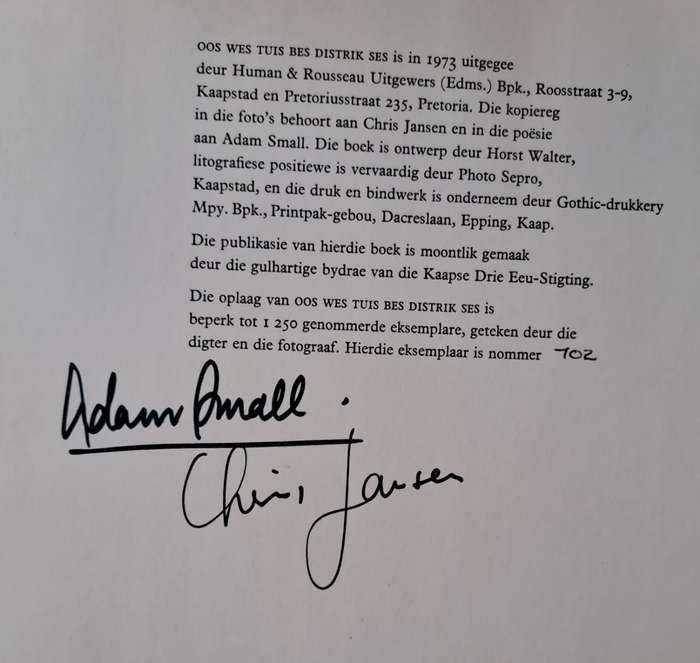 OOS WES TUIS BES DISTRIK SES is in 1973 uitgegee
deur Human & Rousseau Uitgewers (Edms.) Bpk., Roosstraat 3-9,
Kaapstad en Pretoriusstraat 235, Pretoria. Die kopiereg
in die foto's behoort aan Chris Jansen en in die poësie
aan Adam Small. Die boek is ontwerp deur Horst Walter,
litografiese positiewe is vervaardig deur Photo Sepro,
Kaapstad, en die druk en bindwerk is onderneem deur Gothic-drukkery
Mpy. Bpk., Printpak-gebou, Dacreslaan, Epping, Kaap.
Die publikasie van hierdie boek is moontlik gemaak
deur die gulhartige bydrae van die Kaapse Drie Eeu-Stigting.
Die oplaag van OOS WES TUIS BES DISTRIK SES is
beperk tot 1 250 genommerde eksemplare, geteken deur die
digter en die fotograaf. Hierdie eksemplaar is nommer 702
Adam Small.
Chris Jansen